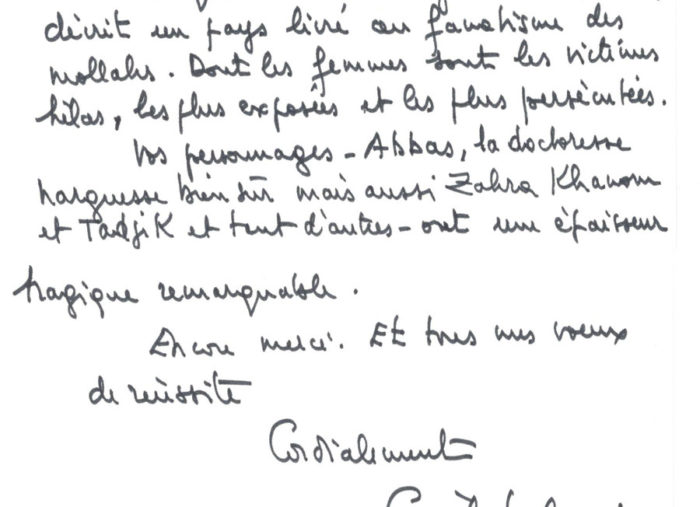 décrit un pays livré au fanatisme des
mollahs. Dont les femmes sont les victimes
hélas, les plus exposées et les plus persécutées.
Vos personnages - Abbas, la doctoresse
Narguesse bien sûr mais aussi Zahra Khanom
et Tadjik et tant d'autres - ont une épaisseur
tragique remarquable.
Encore merci. Et tous mes voeux
de réussite
Cordialement